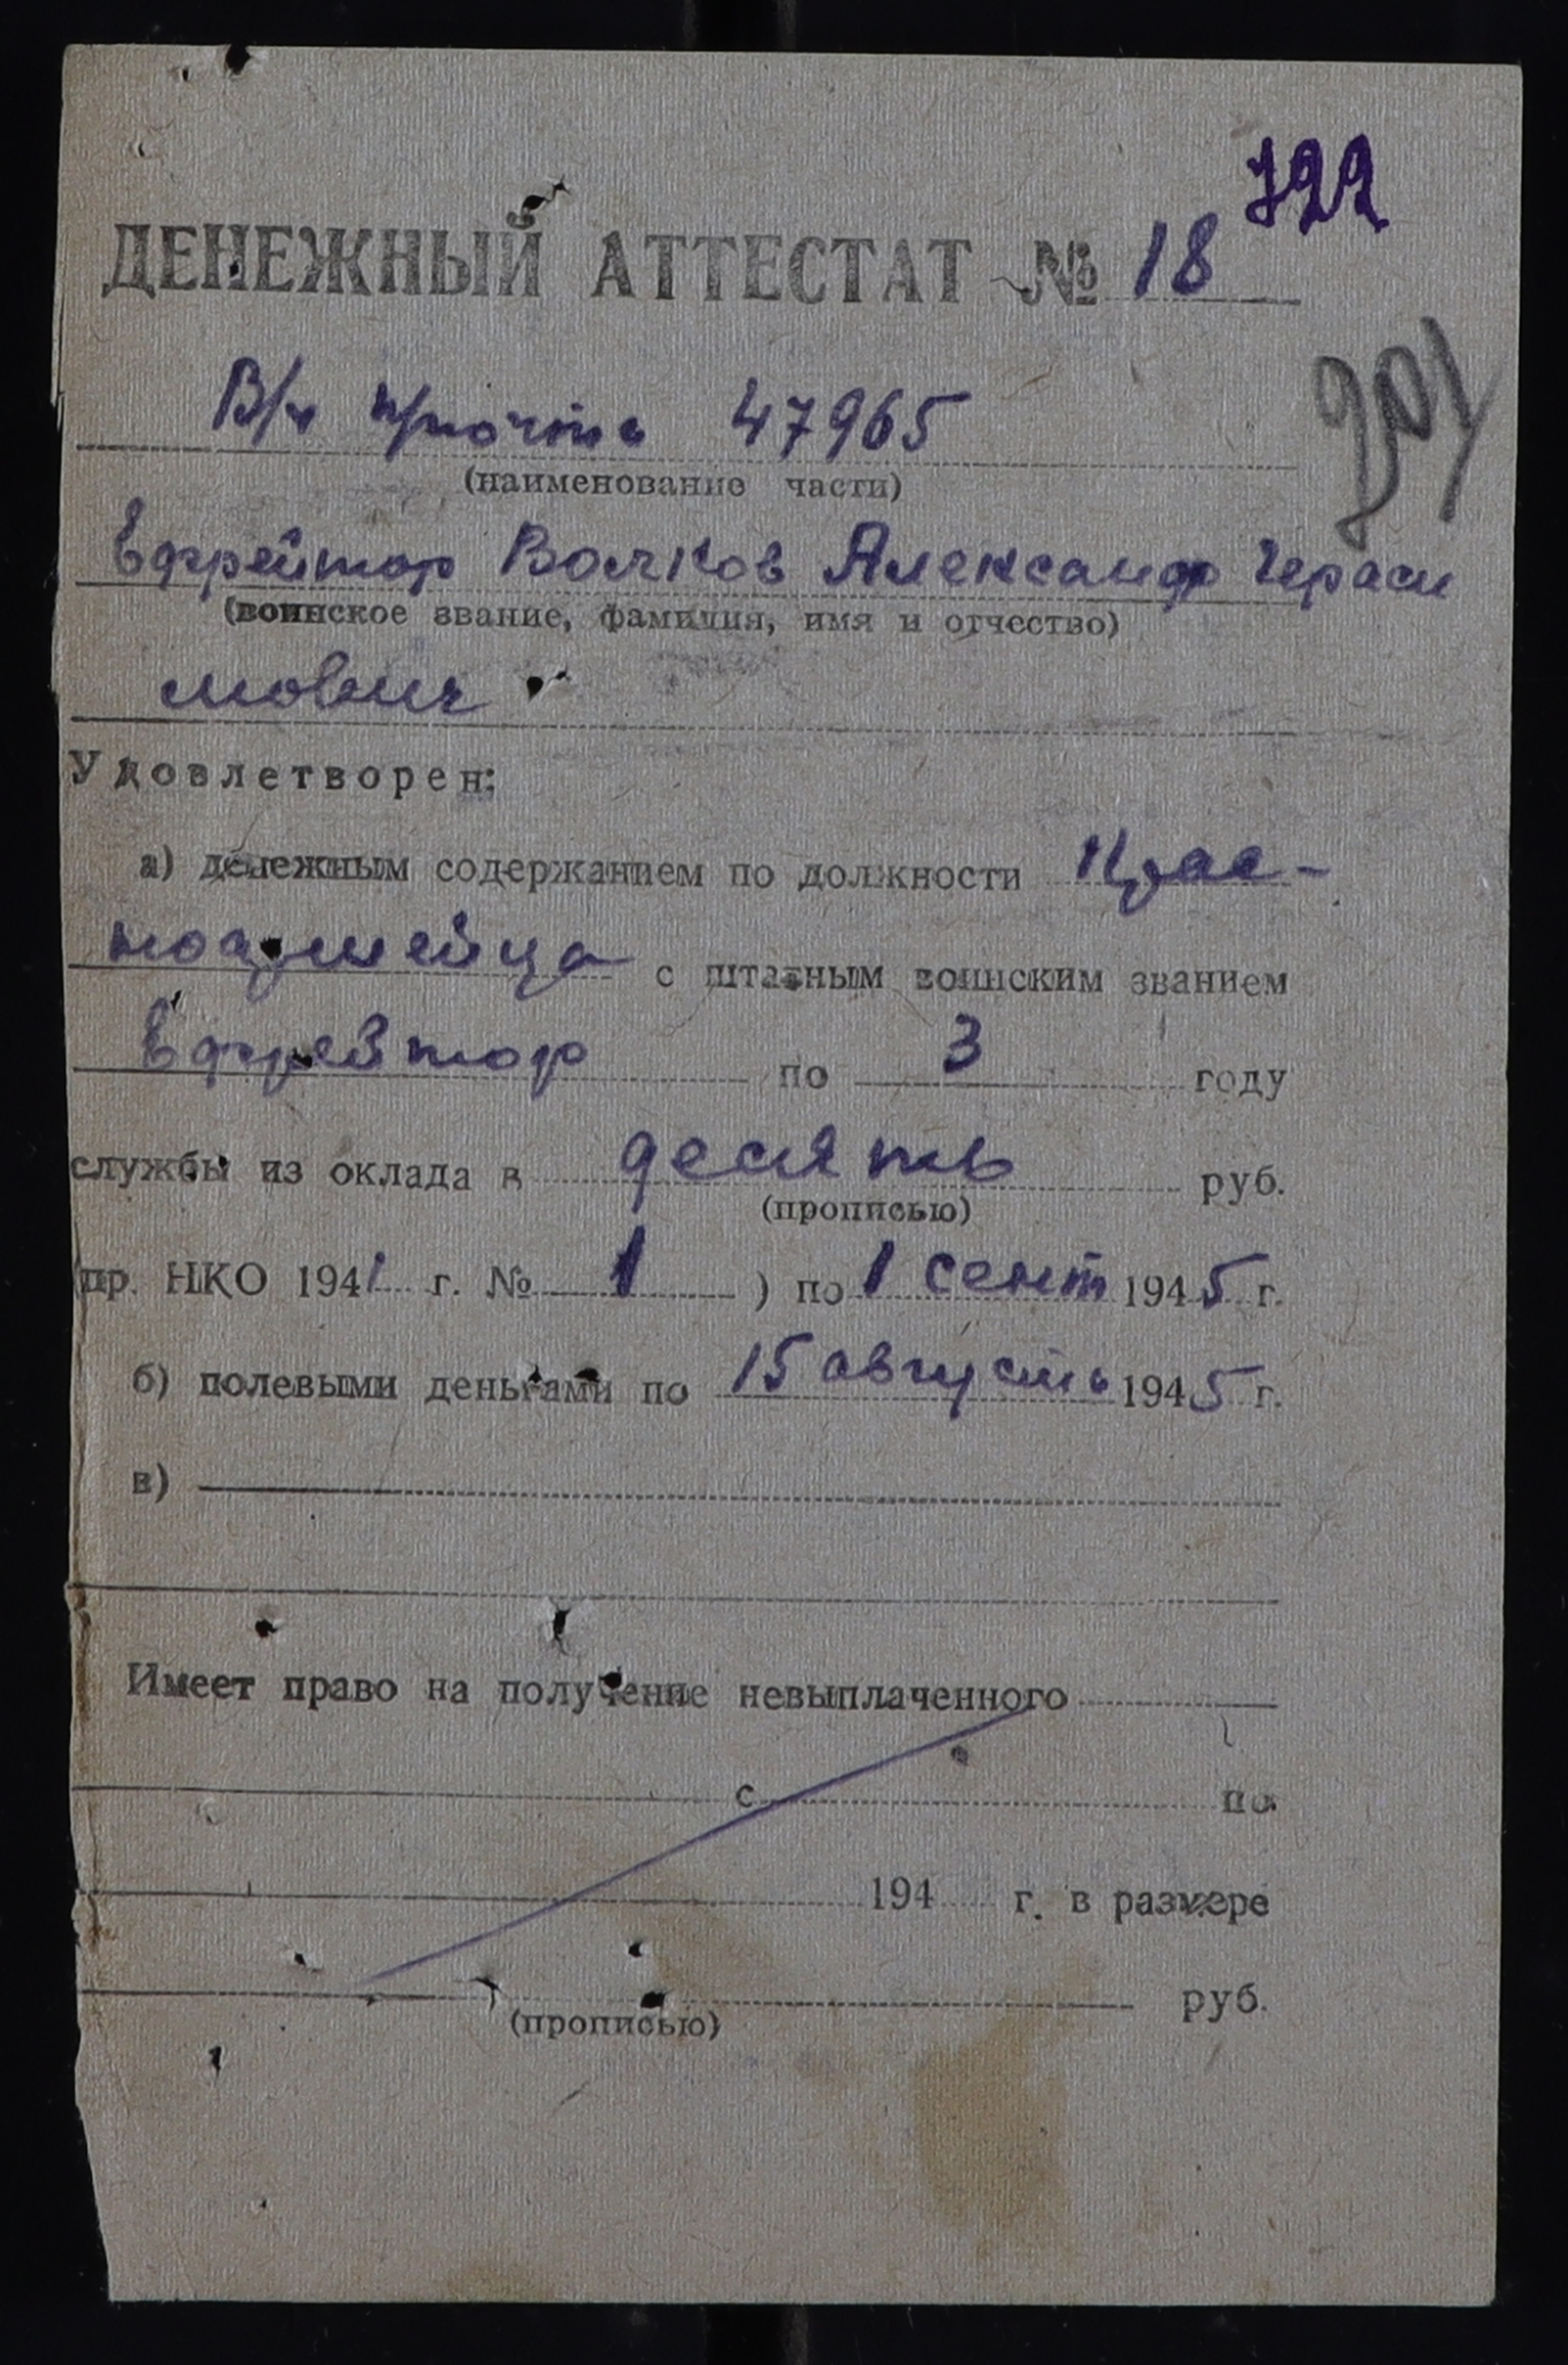 722
ДЕНЕЖНЫЙ АТТЕСТАТ № 18
В/ч п/почта 47965
(наименование части)
Ефрейтор Волков Александр Гераси
(воинское звание, фамилия, имя и отчество)
мович
Удовлетворен:
а) денежным содержанием по должности крас-
ноармейца с штатным воинским званием
Ефрейтор по 3 году
службы из оклада в десять руб.
(прописью)
(пр. НКО 1941 г. № 1 ) по 1 сент 1945 г.
б) полевыми деньгами по 15 августа 1945 г.
в)
Имеет право на получение невыплаченного
с по
194 г. в размере
руб.
(прописью)